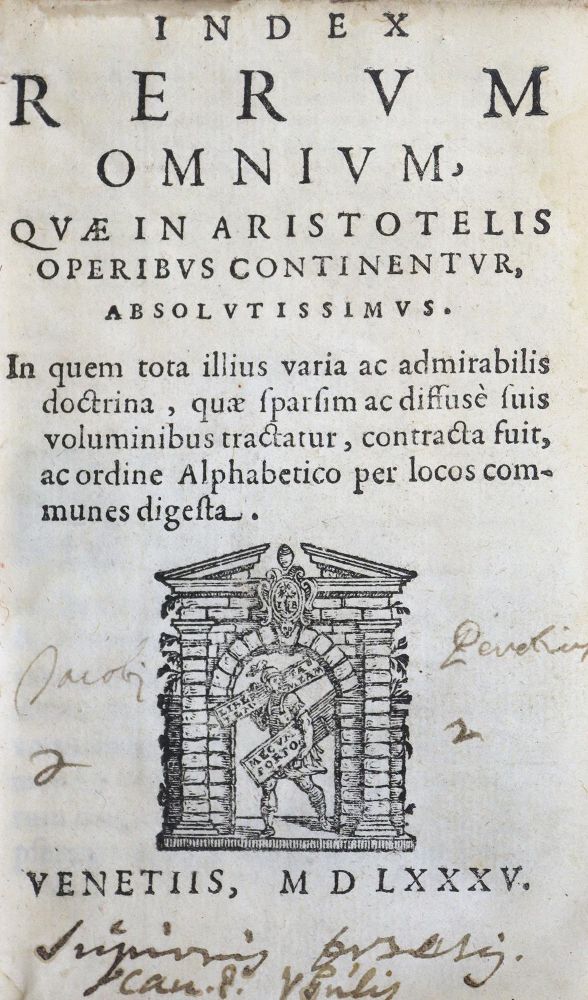 INDEX
RERVM
OMNIVM,
QVÆ IN ARISTOTELIS
OPERIBVS CONTINENTVR,
ABSOLVTISSIMVS.
In quem tota illius varia ac admirabilis
doctrina, quæ ſparſim ac diffusè ſuis
voluminibus tractatur, contracta fuit,
ac ordine Alphabetico per locos com-
munes digeſta.
Jacobi
2 2
MECVM
PORTO
VENETIIS, M D LXXXV.